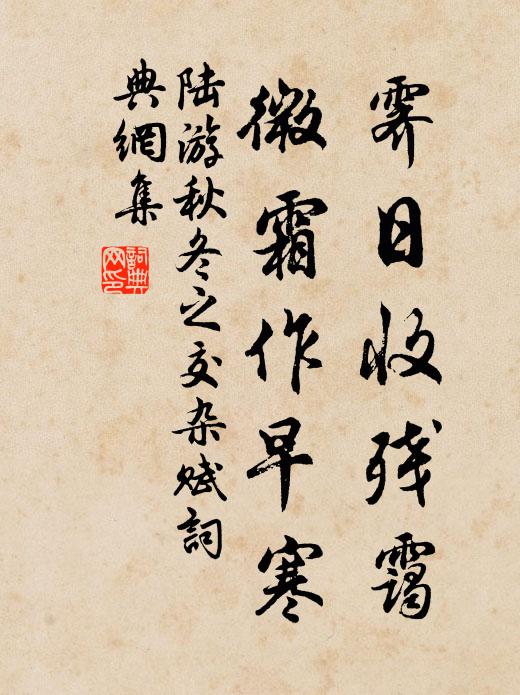 霁日收残霭
微霜作早寒
陆游秋冬之交杂赋詞
典網集
詞典网印